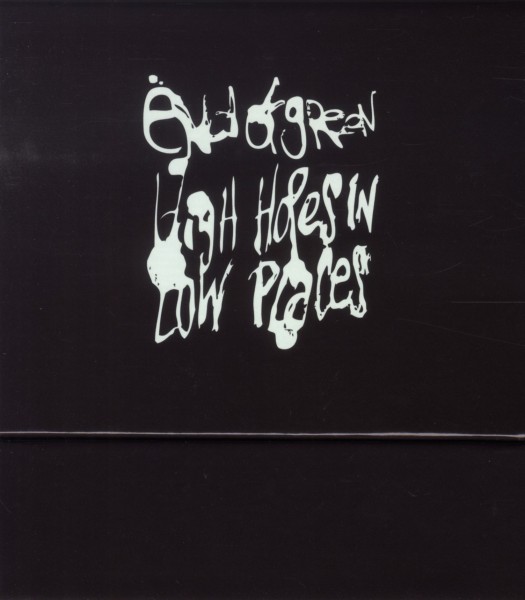 of green
High Holes IN
Low Places